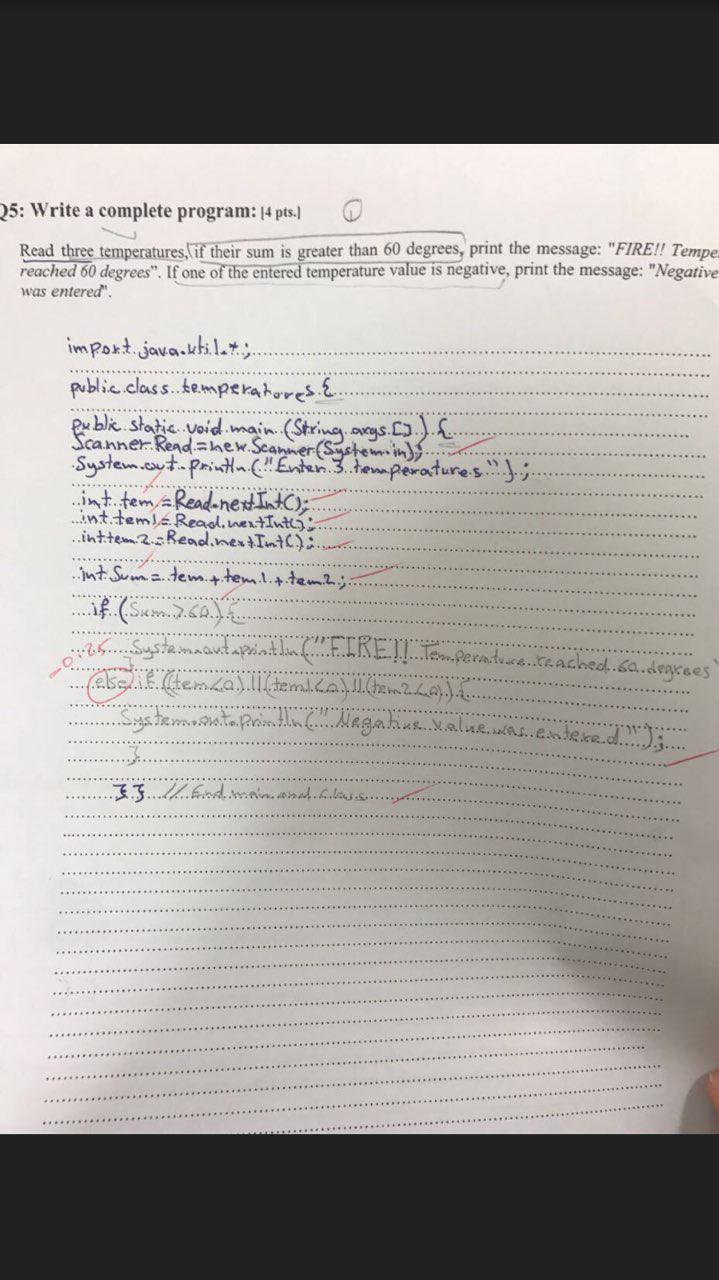 Q5: Write a complete program: [4 pts.] 1
Read three temperatures, if their sum is greater than 60 degrees, print the message: "FIRE!! Tempe
reached 60 degrees". If one of the entered temperature value is negative, print the message: "Negative
was entered".
import java.util.*;
public class temperatores {
public static void main (String args []) {
Scanner Read = new Scanner(System.in);
System.out.println ("Enter 3 temperatures");
int tem = Read.nextInt();
int tem1 = Read.nextInt();
int tem2 = Read.nextInt();
int Sum = tem + tem1 + tem2;
if (Sum > 60) {
System.out.println ("FIRE!! Temperature reached 60 degrees"
-0.25
}
else if ((tem<0) || (tem1<0) || (tem2<0)) {
System.out.println (" Negative value was entered");
}
}} // End main and class